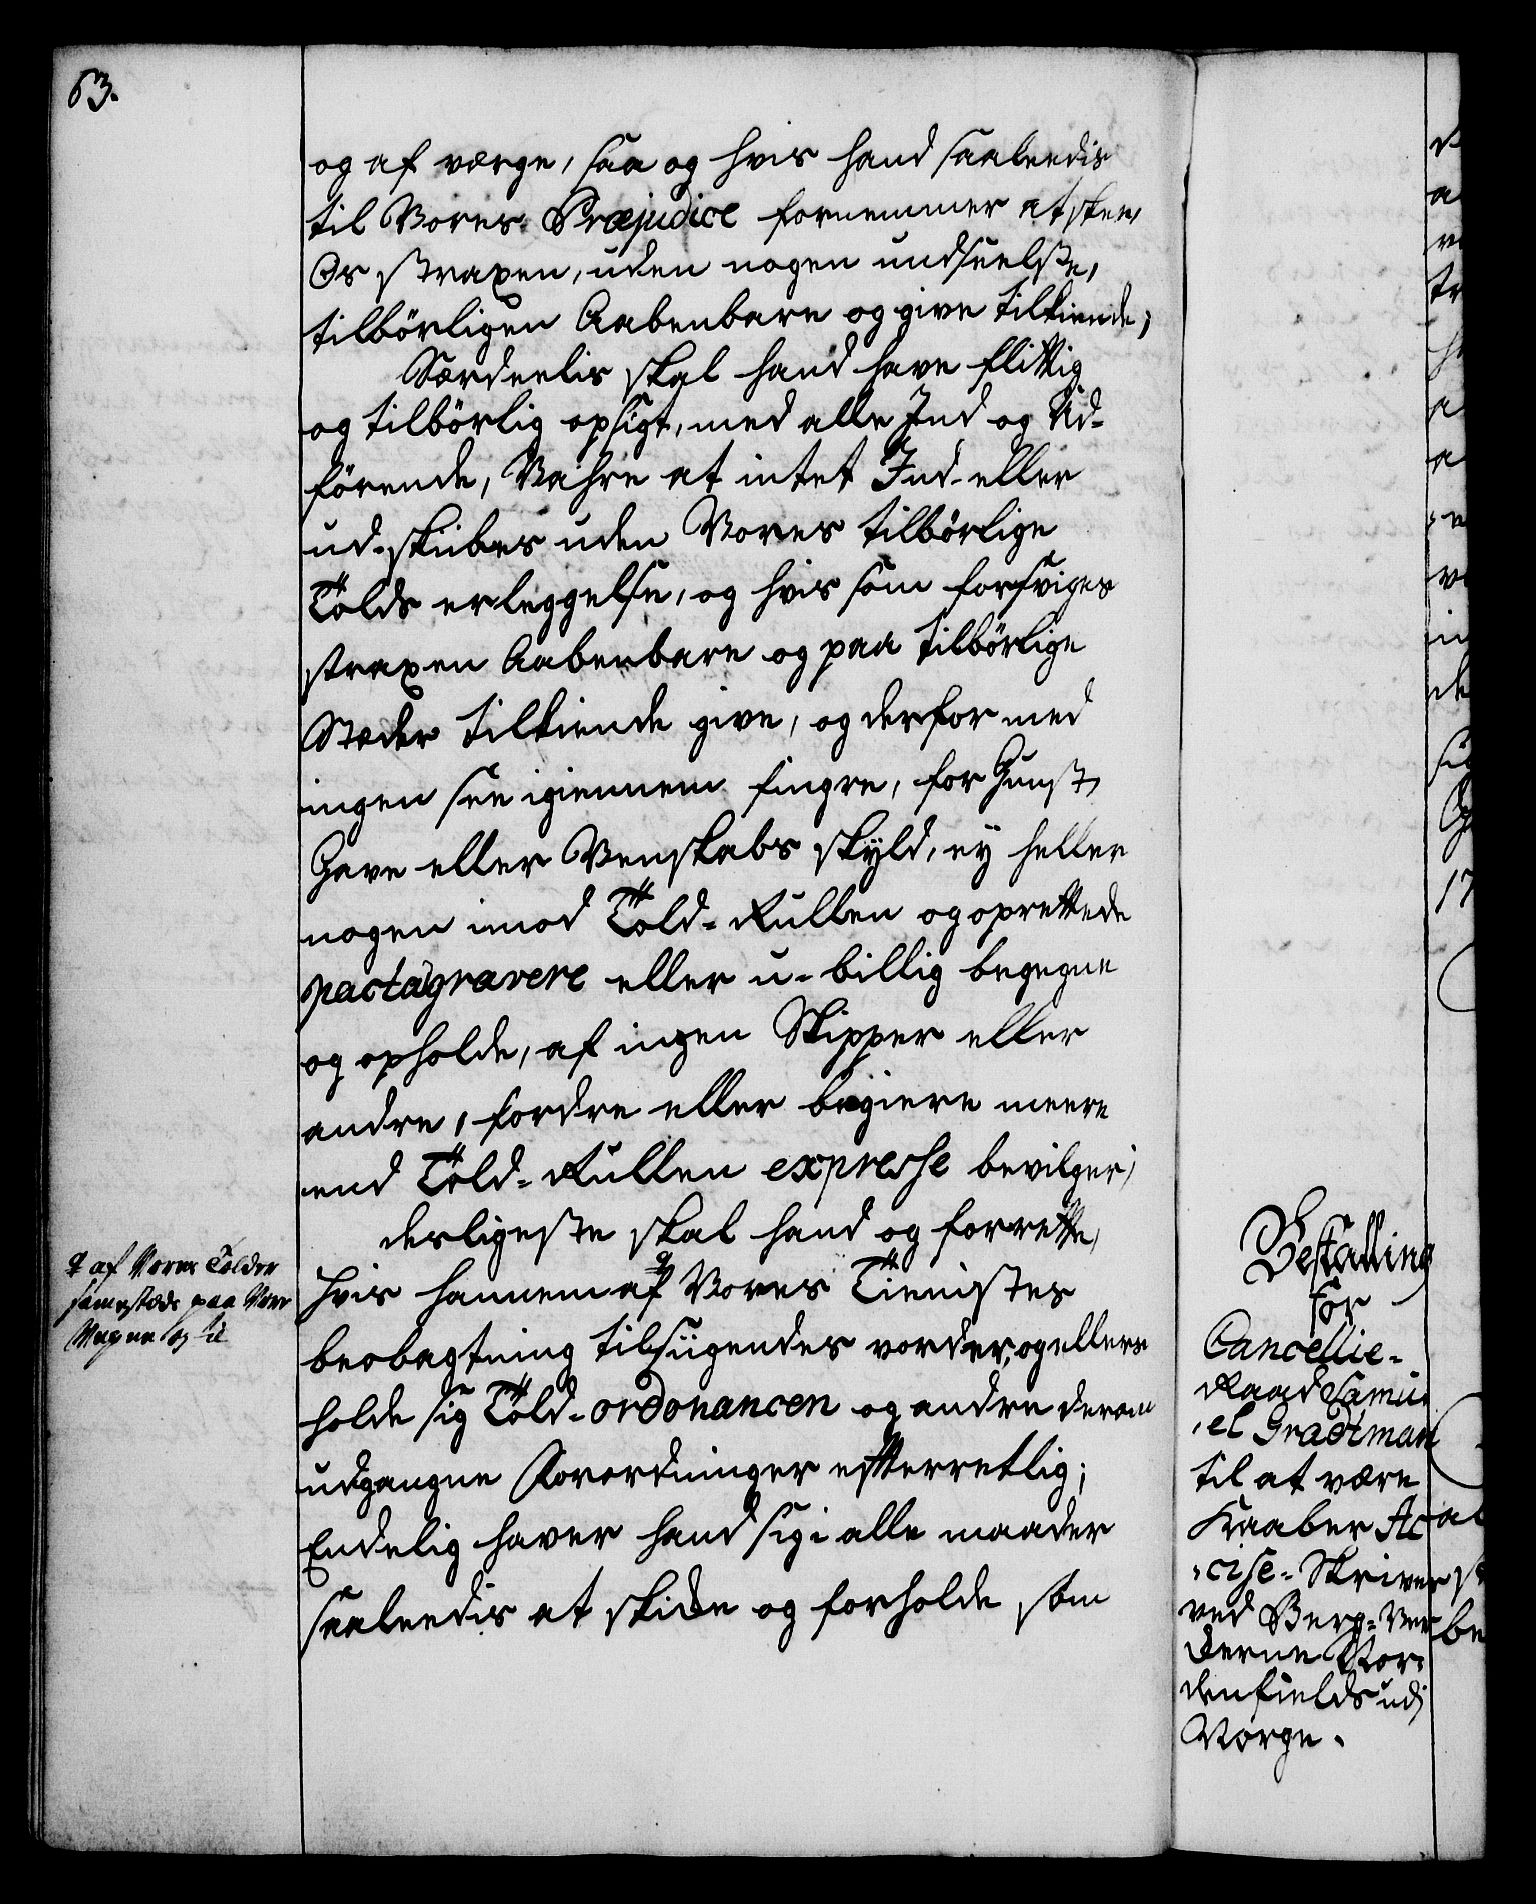 63.
og af værge, saa og hvis hand saaleedis
til Vores Præjudice fornemmer at skee,
Os straxen, uden nogen undseelse,
tilbörligen Aabenbare og give tilkiende;
Særdeelis skal hand have flittig
og tilbörlig opsigt, med alle Ind og Ud-
förende, Vahre at intet Ind- eller
ud-skibes uden Vores tilbörlige
Tolds erleggelse, og hvis som forsviges
straxen Aabenbare og paa tilbörlige
Stæder tilkiende give, og derfor med
ingen see igiennem fingre, for Gunst,
Gave eller Venskabs skyld, ey heller
nogen imod Told-Rullen og oprettede
pacta gravere eller u-billig begegne
og opholde, af ingen Skipper eller
andre, fordre eller begiere meere
end Told-Rullen expresse bevilger;
desligeste skal hand og forrette,
hvis hannem af Vores Tienistes
beobagtning tilsiigendes vorder, og ellers
holde sig Told-ordonancen og andre derom
udgangne Forordninger efterretlig;
Endelig haver hand sig i alle maader
saaleedis at skikke og forholde som
af Vores Tolder
samestæds paa Vore
Vegne og til
Bestalling
for
Cancellie-
Raad Samu-
el Gradtman
til at være
Kaaber Ac
cise-Skriver
ved Berg-Ver
derne Nor-
denfields udj
Norge.